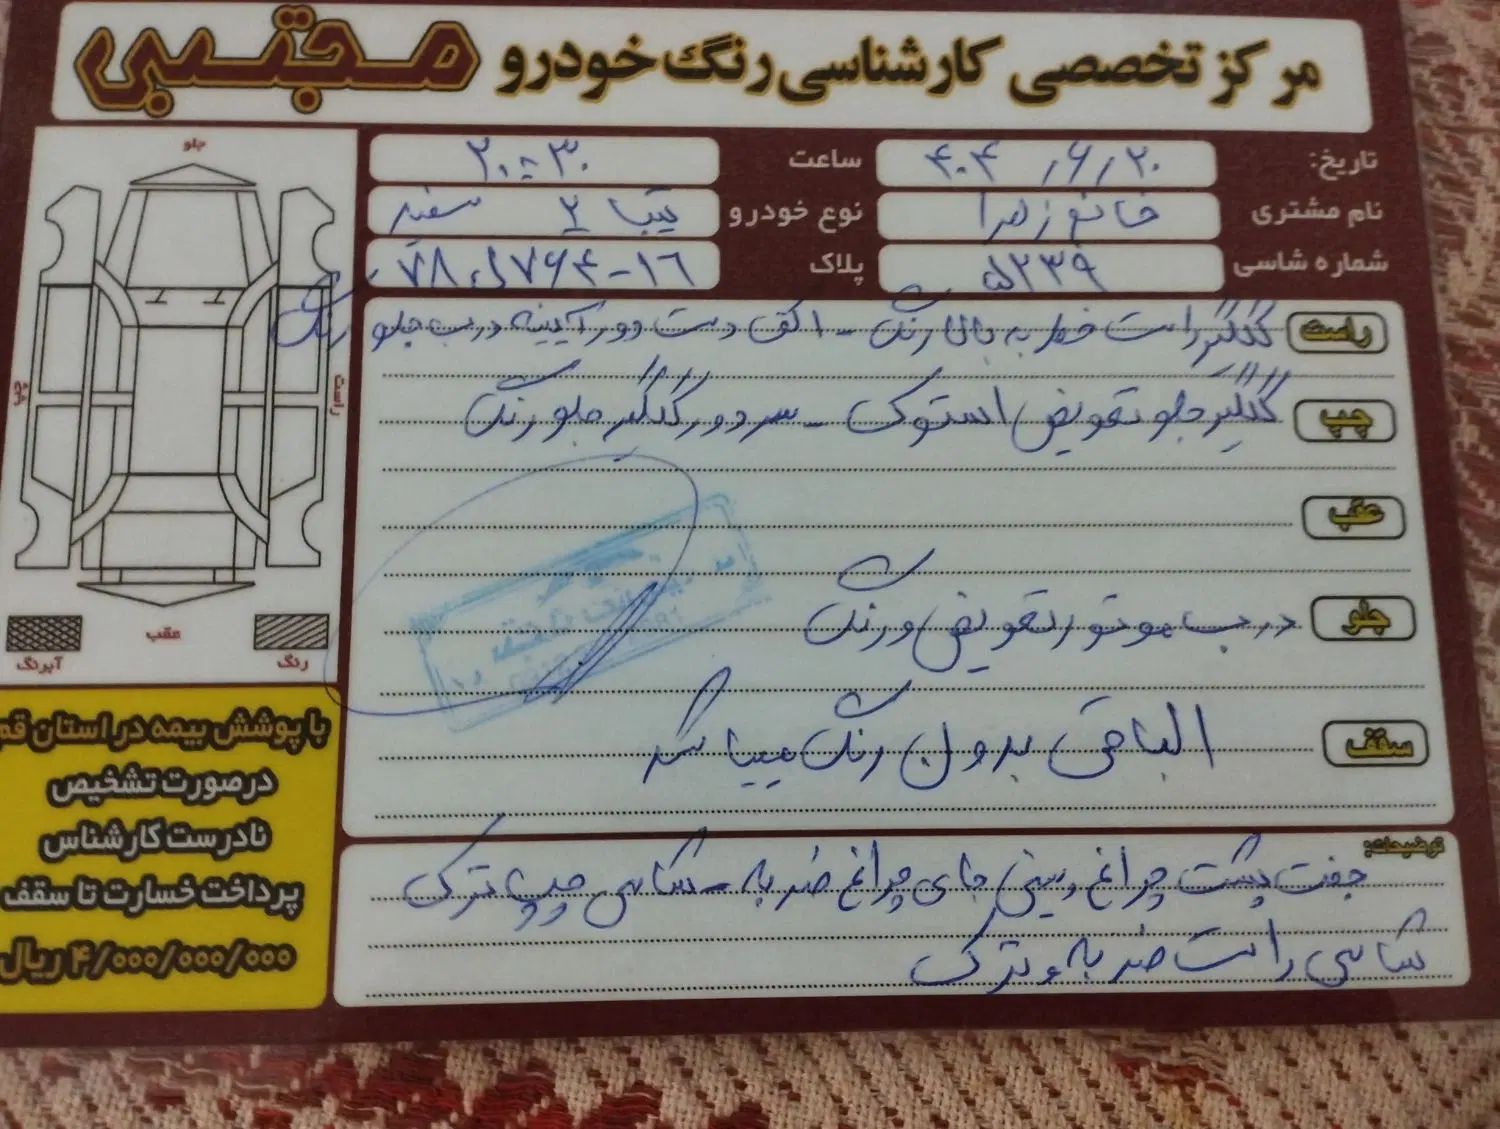 مرکز تخصصی کارشناسی رنگ خودرو مجتبی
تاریخ: ۴۰۴/۶/۲۰ ساعت ۲۰:۳۰
نام مشتری خانم زهرا نوع خودرو تیبا ۲ سفید
شماره شاسی ۵۲۳۹ پلاک
راست گلگیر راست خط به بالا رنگ - ۱ کف دست دور آیینه درب جلو رنگ
چپ گلگیر جلو تعویض استوک - سر دور گلگیر جلو رنگ
عقب
جلو درب موتور تعویض و رنگ
سقف الباقی بدون رنگ میباشد
توضیحات:
جفت پشت چراغ و سینی جای چراغ ضربه - شاسی چپ ترک
شاسی راست ضربه و ترک
جلو
چپ
راست
عقب
آبرنگ
رنگ
با پوشش بیمه در استان قم
درصورت تشخیص
نادرست کارشناس
پرداخت خسارت تا سقف
۴/۰۰۰/۰۰۰/۰۰۰ ریال